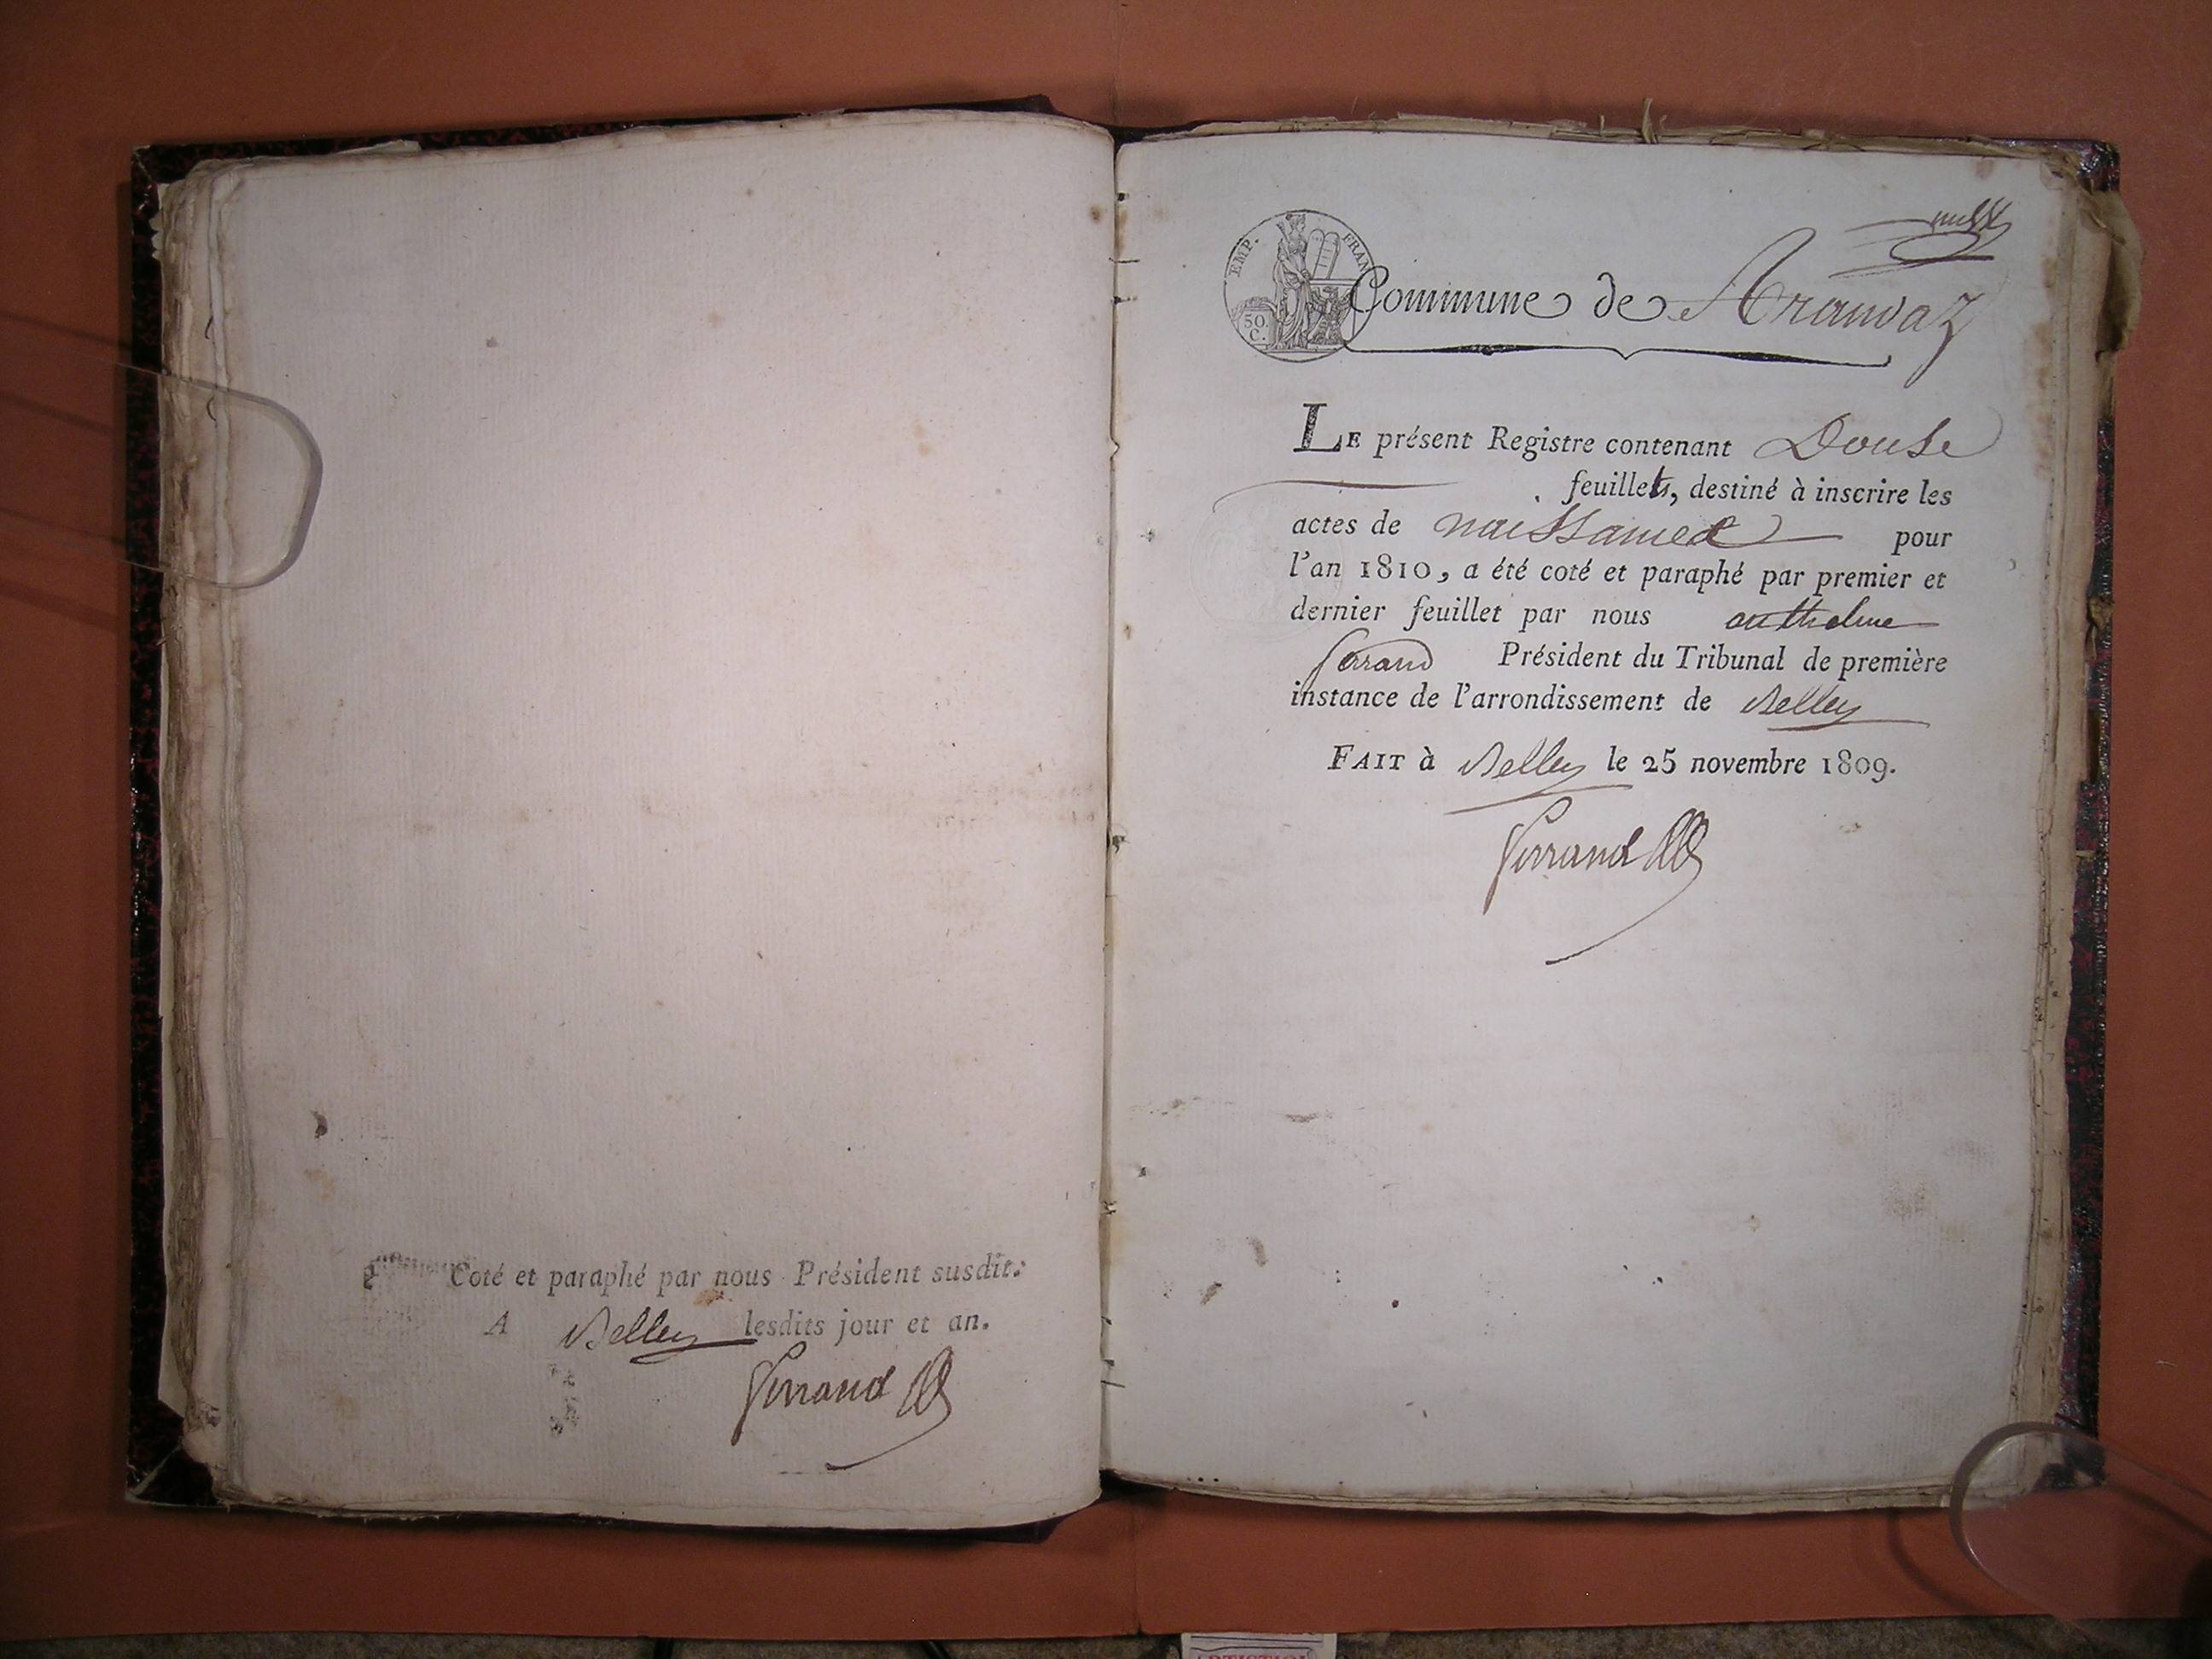 Coté et paraphé par nous Président susdit.
A Belley lesdits jour et an.
Ferrand
EMP. FRAN
50. C.
Commune de Arandaz
LE présent Registre contenant Douse
feuillets, destiné à inscrire les
actes de naissance pour
l'an 1810, a été coté et paraphé par premier et
dernier feuillet par nous anthelme
ferrand Président du Tribunal de première
instance de l'arrondissement de Belley
FAIT à Belley le 25 novembre 1809.
Ferrand